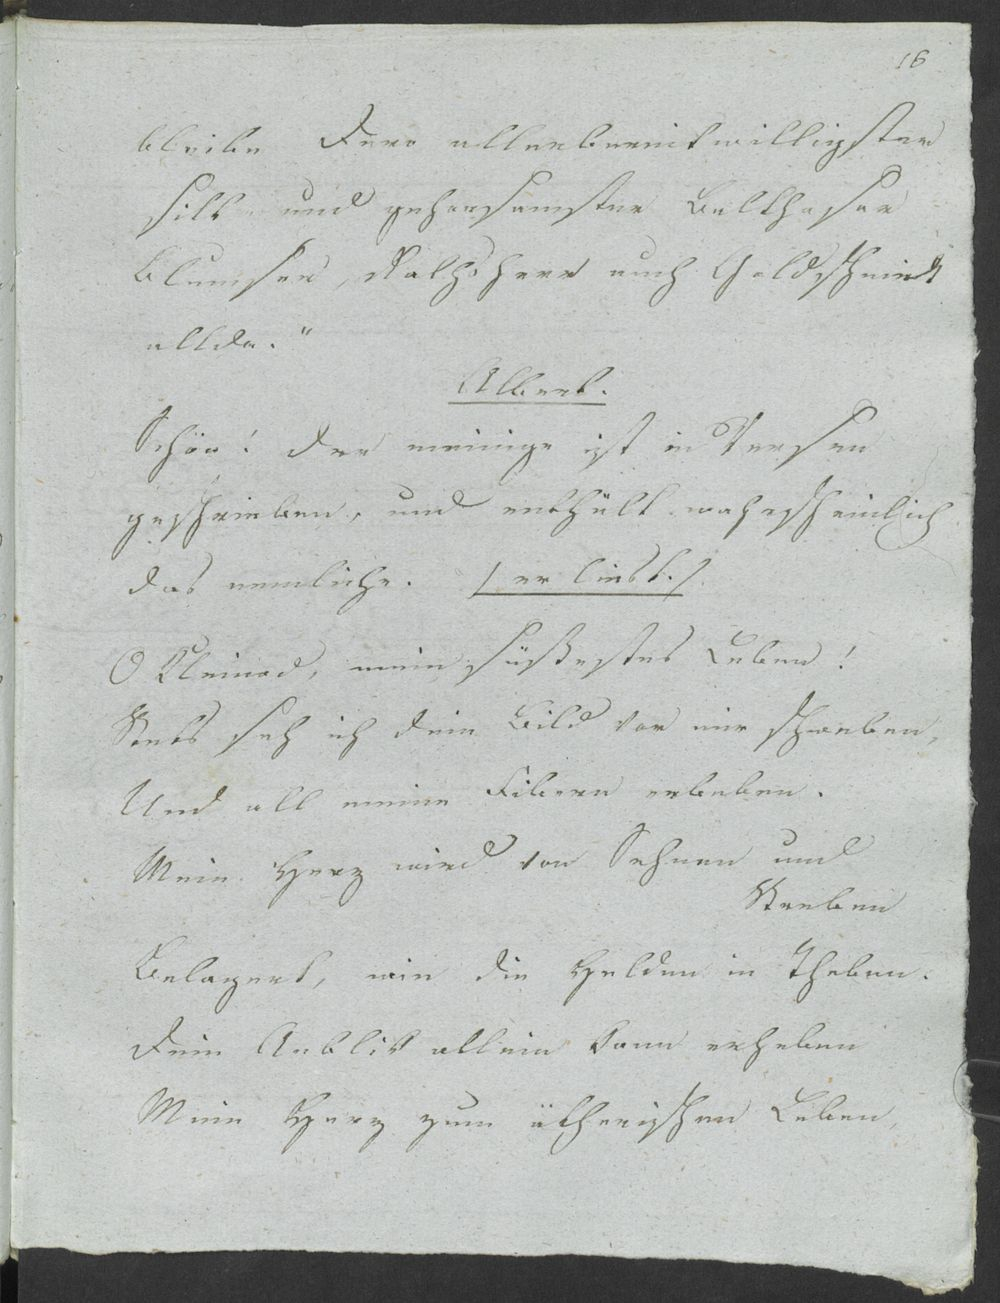 16
bleibe Dero allerbereitwilligster
und gehorsamster Balthasar
Blumser, Rathsherr auch Goldschmidt
allda."
Albert.
Schön! der meinige ist in Versen
geschrieben, und enthält wahrscheinlich
das nemliche. /er liest./
O Kleinod, mein süßestes Leben!
Stets seh ich dein Bild vor mir schweben,
Und all meine Fibern erbeben.
Mein Herz wird von Sehnen und
Streben
Belagert, wie die Helden in Theben.
Dein Anblik allein kann erheben
Mein Herz zum ätherischen Leben,